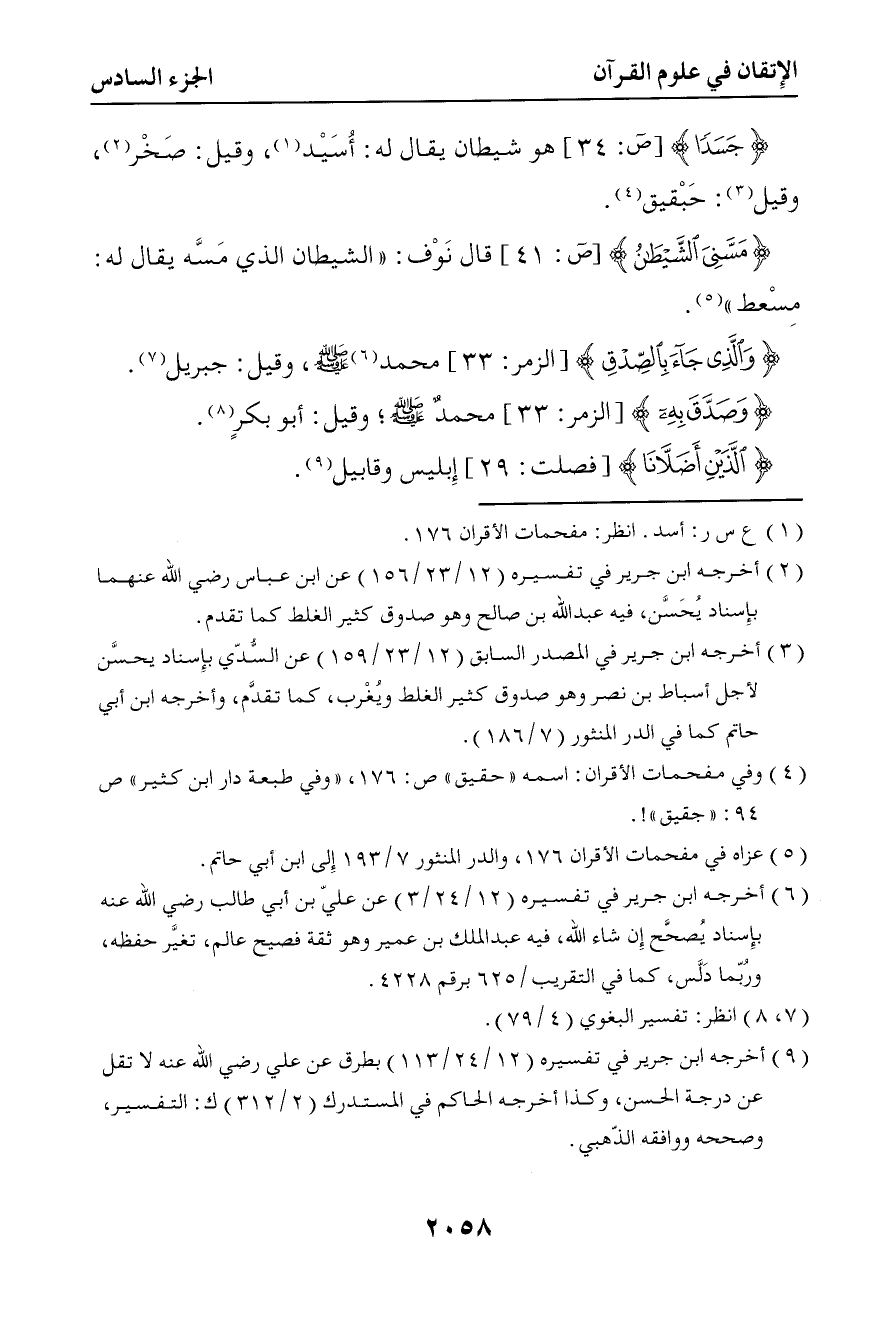 الإتقان في علوم القرآن
الجزء السادس
﴿جَسَدًا﴾ [صٓ: ٣٤] هو شيطان يقال له: أُسَيْد(١)، وقيل: صَخْر(٢)،
وقيل(٣): حَبْقيق(٤).
﴿مَسَّنِيَ ٱلشَّيْطَٰنُ﴾ [صٓ: ٤١] قال نَوْف: «الشيطان الذي مَسَّه يقال له:
مِسْعط»(٥).
﴿وَٱلَّذِى جَآءَ بِٱلصِّدْقِ﴾ [الزمر: ٣٣] محمد(٦)ﷺ، وقيل: جبريل(٧).
﴿وَصَدَّقَ بِهِۦٓ﴾ [الزمر: ٣٣] محمدٌ ﷺ؛ وقيل: أبو بكرٍ(٨).
﴿ٱلَّذَيْنِ أَضَلَّانَا﴾ [فصلت: ٢٩] إبليس وقابيل(٩).
(١) ع س ر: أسد. انظر: مفحمات الأقران ١٧٦.
(٢) أخرجه ابن جرير في تفسيره (١٢/٢٣/١٥٦) عن ابن عباس رضي الله عنهما
بإسناد يُحَسَّن، فيه عبدالله بن صالح وهو صدوق كثير الغلط كما تقدم.
(٣) أخرجه ابن جرير في المصدر السابق (١٢/٢٣/١٥٩) عن السُّدّي بإسناد يحسَّن
لأجل أسباط بن نصر وهو صدوق كثير الغلط ويُغْرب، كما تقدَّم، وأخرجه ابن أبي
حاتم كما في الدر المنثور (٧/١٨٦).
(٤) وفي مفحمات الأقران: اسمه «حقيق» ص: ١٧٦، «وفي طبعة دار ابن كثير» ص
٩٤: «جقيق»!.
(٥) عزاه في مفحمات الأقران ١٧٦، والدر المنثور ٧/١٩٣ إلى ابن أبي حاتم.
(٦) أخرجه ابن جرير في تفسيره (١٢/٢٤/٣) عن عليّ بن أبي طالب رضي الله عنه
بإسناد يُصحَّح إن شاء الله، فيه عبدالملك بن عمير وهو ثقة فصيح عالم، تغيَّر حفظه،
ورُبّما دَلَّس، كما في التقريب/٦٢٥ برقم ٤٢٢٨.
(٧، ٨) انظر: تفسير البغوي (٤/٧٩).
(٩) أخرجه ابن جرير في تفسيره (١٢/٢٤/١١٣) بطرق عن علي رضي الله عنه لا تقل
عن درجة الحسن، وكذا أخرجه الحاكم في المستدرك (٢/٣١٢) ك: التفسير،
وصححه ووافقه الذّهبي.
٢٠٥٨